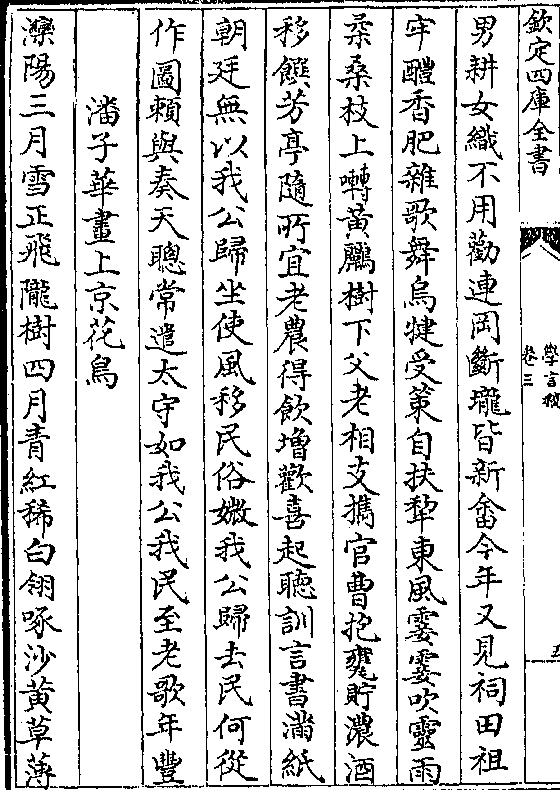 欽定四庫全書
學言稿
卷三
五
男耕女織不用勸連岡斷壠皆新畬今年又見祠田祖
牢醴香肥雜歌舞烏犍受策自扶犂東風霎霎吹靈雨
柔桑枝上囀黄鸝樹下父老相支攜官曹抱甕貯濃酒
移饌芳亭隨所宜老農得飲增歡喜起聽訓言書滿紙
朝廷無以我公歸坐使風移民俗媺我公歸去民何從
作圖賴與奏天聰常遣太守如我公我民至老歌年豐
潘子華畫上京花鳥
灤陽三月雪正飛隴樹四月青紅稀白翎啄沙黄草薄